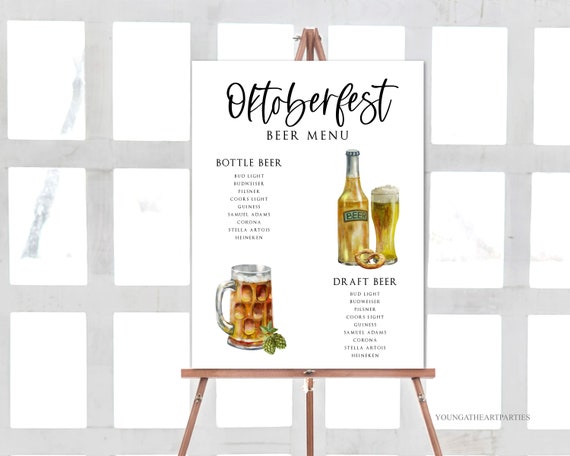 Oktoberfest
BEER MENU
BOTTLE BEER
BUD LIGHT
BUDWEISER
PILSNER
COORS LIGHT
GUINESS
SAMUEL ADAMS
CORONA
STELLA ARTOIS
HEINEKEN
BEER
DRAFT BEER
BUD LIGHT
BUDWEISER
PILSNER
COORS LIGHT
GUINESS
SAMUEL ADAMS
CORONA
STELLA ARTOIS
HEINEKEN
YOUNGATHEARTPARTIES